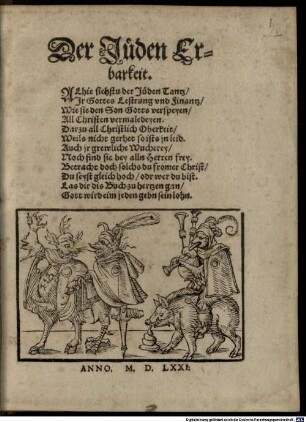 Der Jüden Er-
barkeit.
Alhie siehstu der Jüden Tantz/
Ir Gottes Lestrung vnd Finantz/
Wie sie den Son Gotts verspeyen/
All Christen vermaledeyen.
Darzu all Christlich Oberkeit/
Weils nicht gerhet so ists jn leid.
Auch jr grewliche Wucherey/
Noch sind sie bey alln Herren frey.
Betracht doch solchs du fromer Christ/
Du seyst gleich hoch/ odr wer du bist.
Las dir dis Buch zu hertzen gan/
Gott wird eim jeden gebn sein lohn.
ANNO, M. D. LXXI.